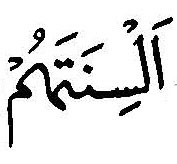 اَلْسِنَتَهُمْ